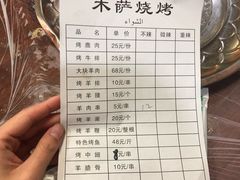 木萨烧烤
الشواء
品 名 单 价 不辣 微辣 重辣
烤鹿肉 25元/份
烤牛排 25元/份
大块羊肉 68元/份
烤羊排 10元/串
烤羊腰 15元/个
羊肉串 5元/串 12
烤羊 20元/个
烤羊鞭 20元/整根
特色烤鱼 48元/条
烤中翅 元/串
羊脆骨 10元/串